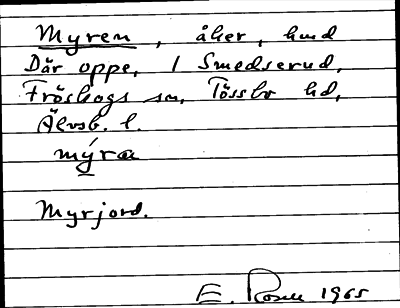 Myren, åker, hmd
Där oppe, 1 Smedserud,
Fröskogs sn, Tössbo hd,
Älvsb. l.
mýra
Myrjord.
E. Rosen 1965